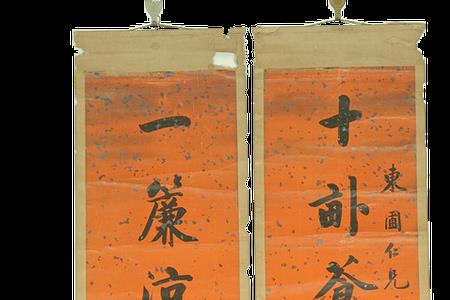 東圃仁兄
十畝蒼
一簾涼